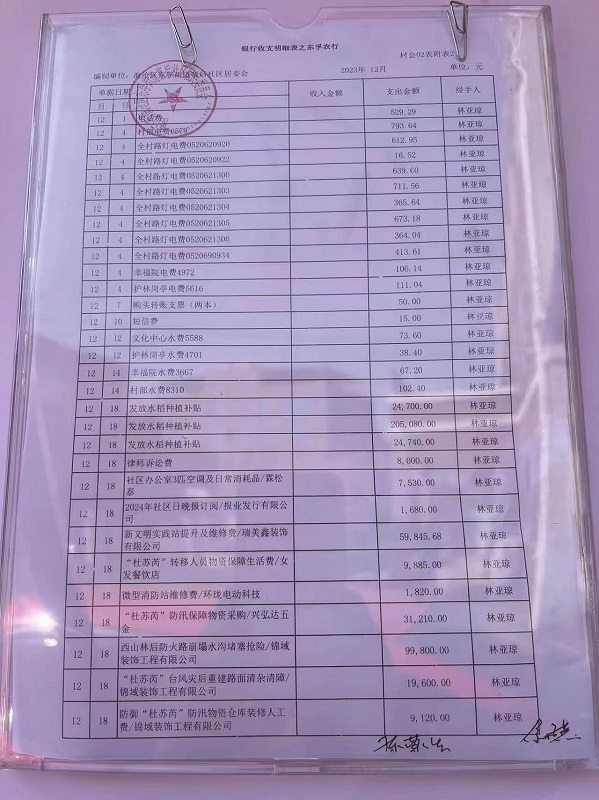 银行收支明细表之东孚农行
村会02表附表2
编制单位: 社区居委会 2023年 12月 单位: 元
单据日期 收入金额 支出金额 经手人
月 日
12 1 电话费 529.29 林亚琼
12 4 村部电费6579 793.64 林亚琼
12 4 全村路灯电费0520620920 612.95 林亚琼
12 4 全村路灯电费0520620922 16.52 林亚琼
12 4 全村路灯电费0520621300 639.60 林亚琼
12 4 全村路灯电费0520621303 711.56 林亚琼
12 4 全村路灯电费0520621304 365.64 林亚琼
12 4 全村路灯电费0520621305 673.18 林亚琼
12 4 全村路灯电费0520621306 364.04 林亚琼
12 4 全村路灯电费0520690934 413.61 林亚琼
12 4 幸福院电费4972 106.14 林亚琼
12 4 护林岗亭电费5616 111.04 林亚琼
12 7 购买转账支票（两本） 50.00 林亚琼
12 10 短信费 15.00 林亚琼
12 12 文化中心水费5588 73.60 林亚琼
12 12 护林岗亭水费4701 38.40 林亚琼
12 14 幸福院水费3667 67.20 林亚琼
12 14 村部水费8310 102.40 林亚琼
12 18 发放水稻种植补贴 24,700.00 林亚琼
12 18 发放水稻种植补贴 205,080.00 林亚琼
12 18 发放水稻种植补贴 24,740.00 林亚琼
12 18 律师诉讼费 8,000.00 林亚琼
12 18 社区办公室3匹空调及日常消耗品/霖松 7,530.00 林亚琼
泰
12 18 2024年社区日晚报订阅/报业发行有限公 1,680.00 林亚琼
司
12 18 新文明实践站提升及维修费/瑞美鑫装饰 59,845.68 林亚琼
有限公司
12 18 “杜苏芮”转移人员物资保障生活费/女 9,885.00 林亚琼
发餐饮店
12 18 微型消防站维修费/环珑电动科技 1,820.00 林亚琼
12 18 “杜苏芮”防汛保障物资采购/兴弘达五 31,210.00 林亚琼
金
12 18 西山林后防火路崩塌水沟堵塞抢险/锦域 99,800.00 林亚琼
装饰工程有限公司
12 18 “杜苏芮”台风灾后重建路面清杂清障/ 19,600.00 林亚琼
锦域装饰工程有限公司
12 18 防御“杜苏芮”防汛物资仓库装修人工 9,120.00 林亚琼
费/锦域装饰工程有限公司